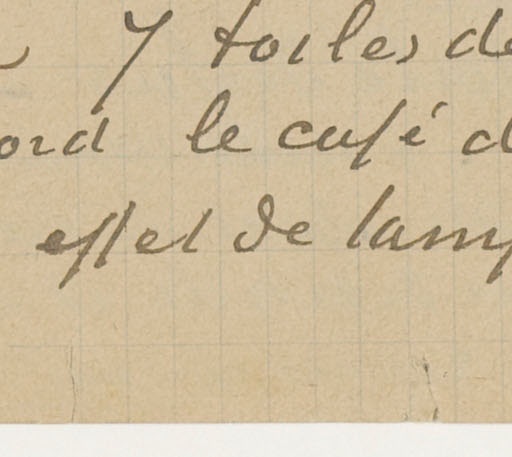 7 toiles de
ord le café d
effet de lamp